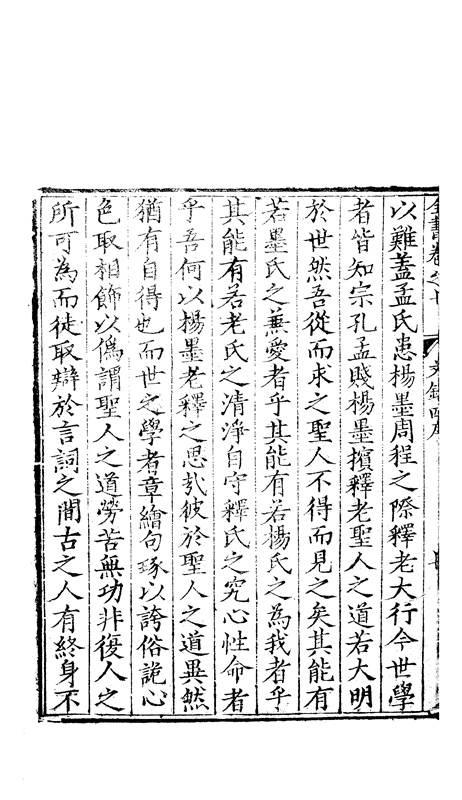 全書卷之七 文錄四序
以難蓋孟氏患楊墨周程之際釋老大行今世學
者皆知宗孔孟賤楊墨擯釋老聖人之道若大明
於世然吾從而求之聖人不得而見之矣其能有
若墨氏之兼愛者乎其能有若楊氏之為我者乎
其能有若老氏之清淨自守釋氏之究心性命者
乎吾何以楊墨老釋之思㢤彼於聖人之道異然
猶有自得也而世之學者章繪句琢以誇俗詭心
色取相飾以偽謂聖人之道勞苦無功非復人之
所可為而徒取辯於言詞之間古之人有終身不